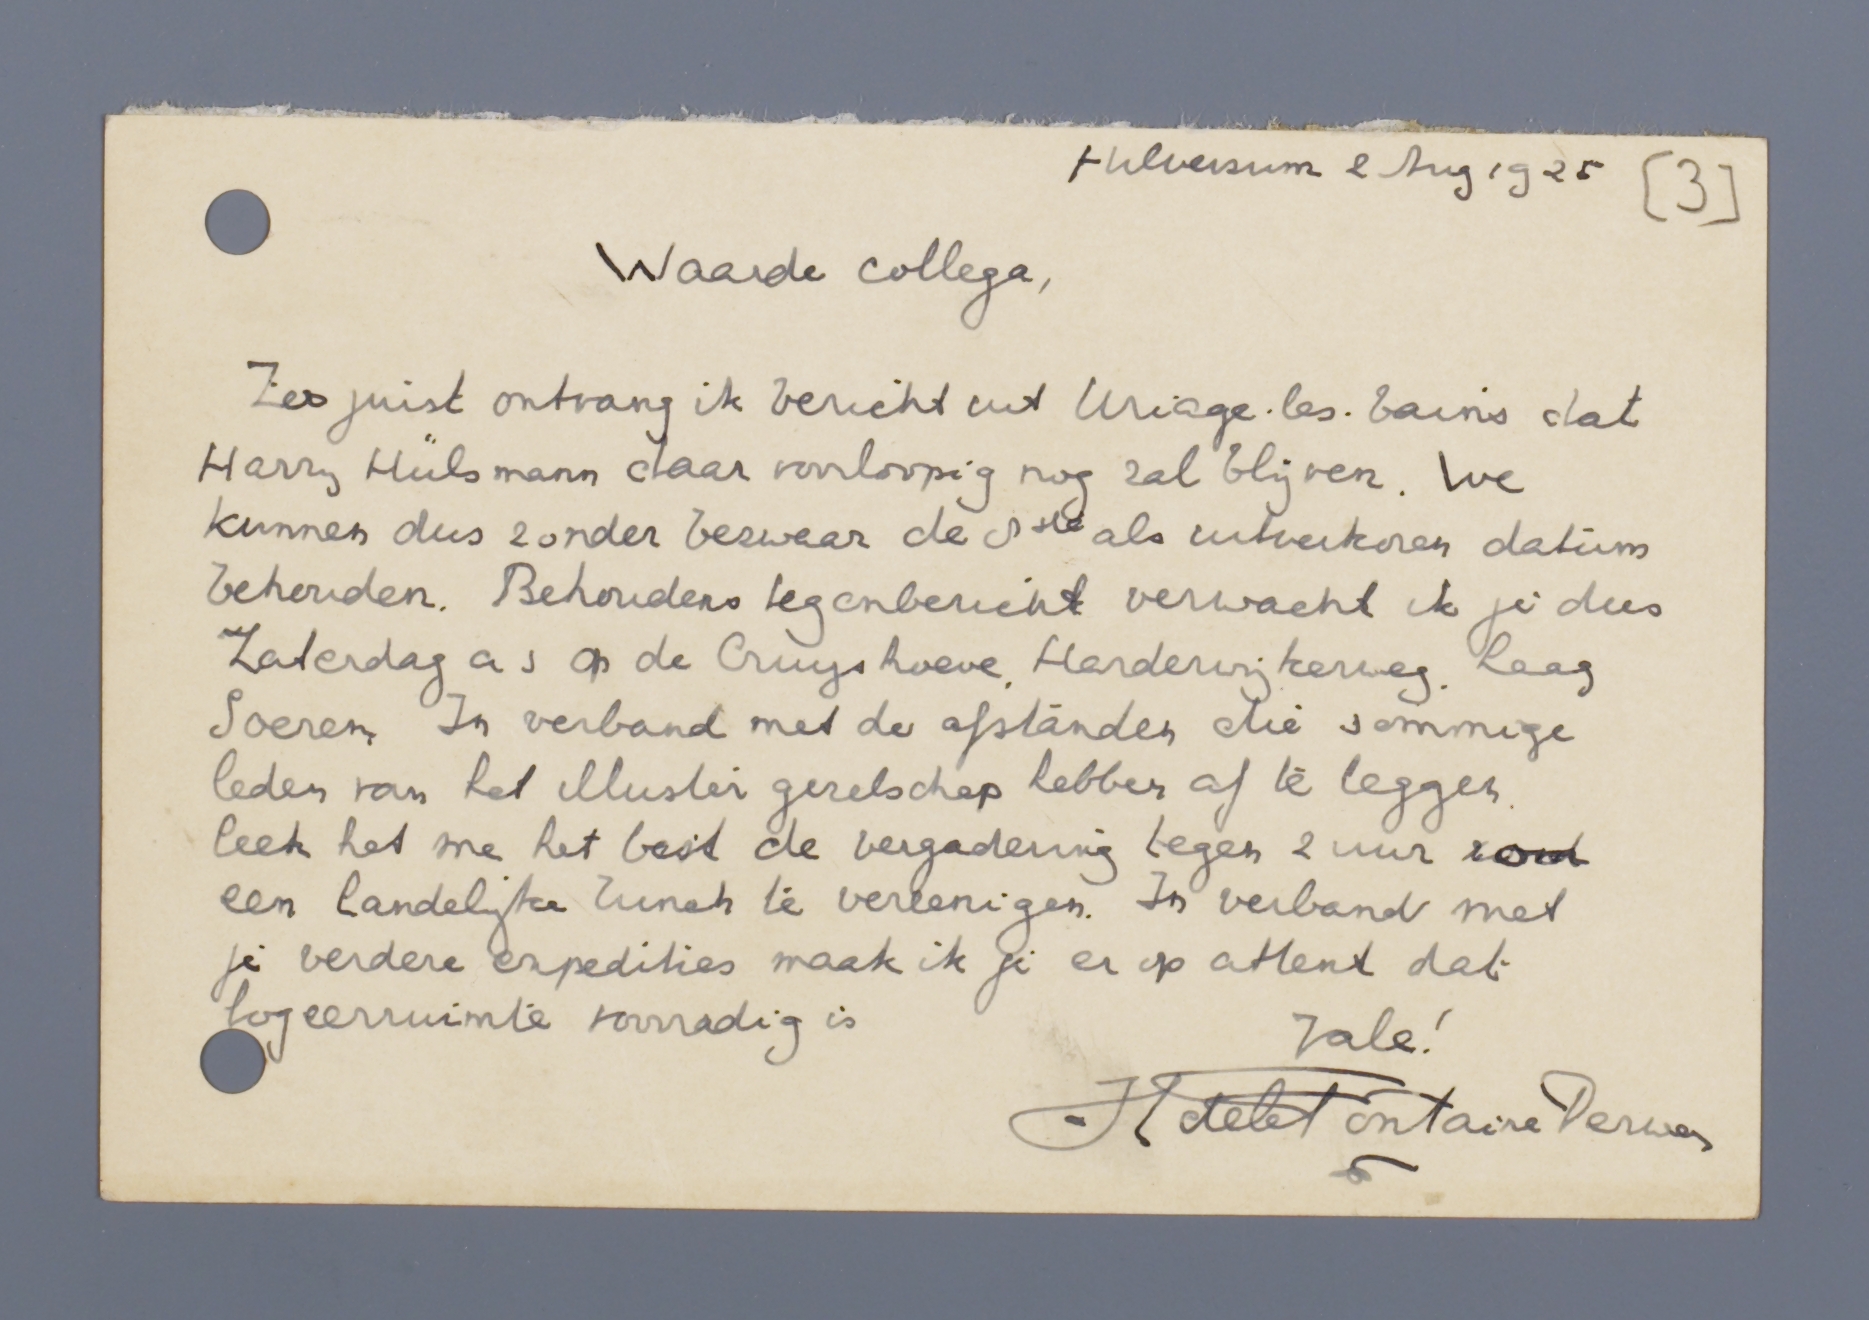 Hilversum 2 Aug 1925 [3]
Waarde collega,
Zoo juist ontvang ik bericht uit Uriage-les-bains dat
Harry Hülsmann daar voorloopig nog zal blijven. We
kunnen dus zonder bezwaar de 8ste als uitverkoren datum
behouden. Behoudens tegenbericht verwacht ik je dus
Zaterdag a s op de Cruyshoeve, Harderwijkerweg. Laag
Soeren. In verband met de afstanden die sommige
leden van het illuster gezelschap hebben af te leggen,
leek het me het best de vergadering tegen 2 uur rond
een landelijke lunch te vereenigen. In verband met
je verdere expedities maak ik je er op attent dat
logeerruimte voorradig is
Vale!
H de la Fontaine Verwey